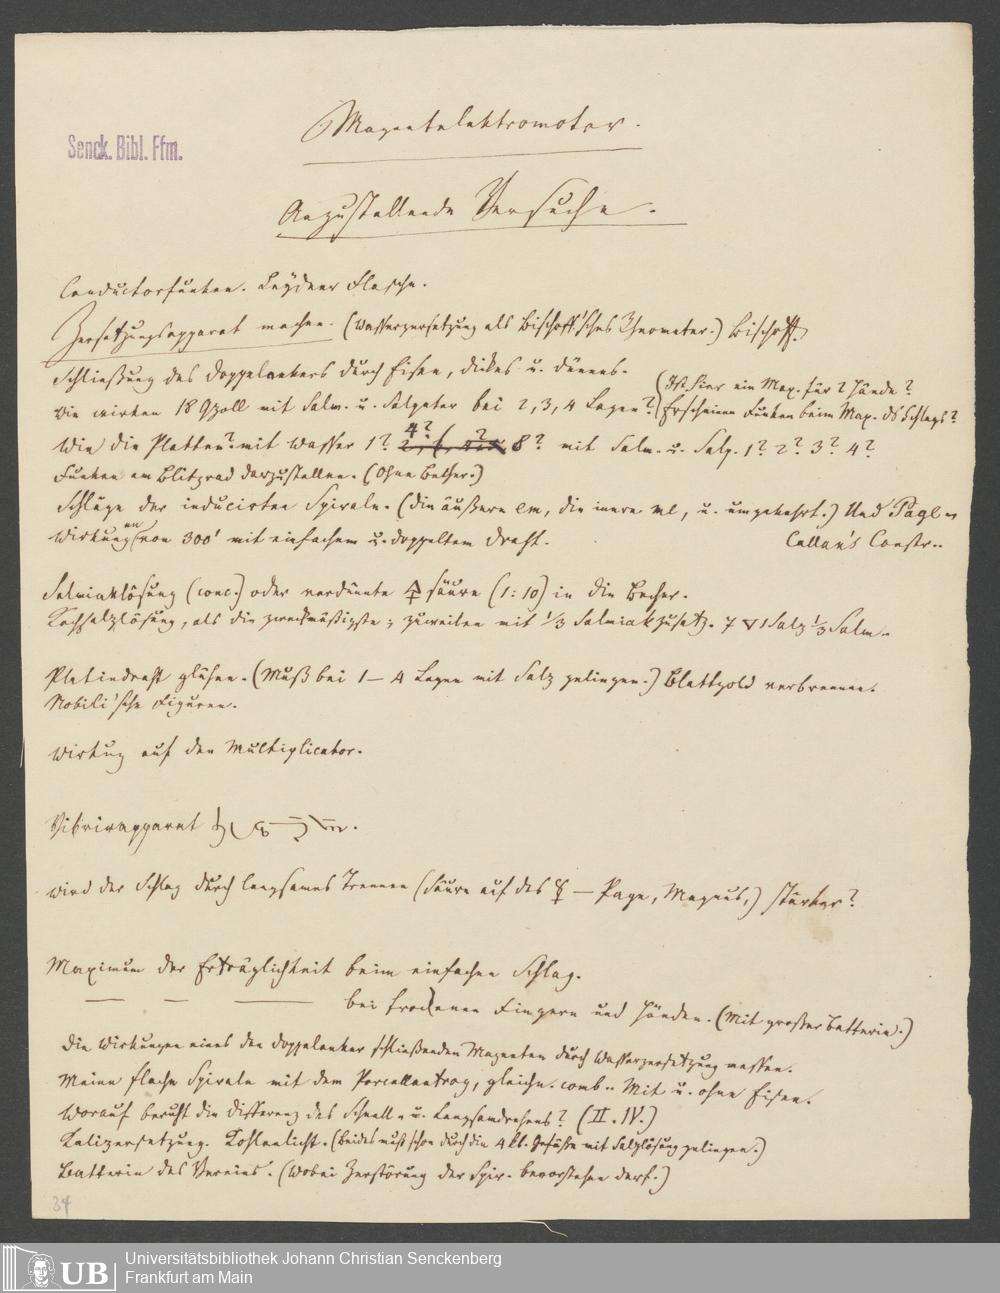 Magnetelektromotor.
Senck. Bibl. Ffm.
Anzustellende Versuche.
Conductorfunken. Leydner Flasche.
Zersetzungsapparat machen. (Wasserzersetzung als Bischoff'sches Rheometer.) Bischoff.
Schließung des Doppelankers durch Eisen, dickes u. dünnes.
(Ist hier ein Max. für 2 Hände?
Wie wirken 18 Qzoll mit Salm. u. Salpeter bei 2, 3, 4 Lagen? Erscheinen Funken beim Max. ds Schlags?
Wie die Platten? mit Wasser 1? 4? 8? mit Salm. u. Salp. 1? 2? 3? 4?
Funken am Blitzrad darzustellen. (Ohne Becher.)
Schläge der inducirten Spirale. (die äußere em, die innere ml, u. umgekehrt.) Und Page's
Wirkungen von 300' mit einfachem u. doppeltem Draht. Callan's Constr..
Salmiaklösung (conc.) oder verdünnte säure (1:10) in die Becher.
Kochsalzlösung, als die zweckmäßigste; zuweilen mit 1/3 Salmiakzusatz. 7 🜄 1 Salz 1/3 Salm.
Platindraht glühen. (Muß bei 1 – 4 Lagen mit Salz gelingen.) Blattgold verbrennen.
Nobili'sche Figuren.
Wirkung auf den Multiplicator.
Vibrirapparat
Wird der Schlag durch langsames Trennen (Säure auf des ☿ — Page, Magnus,) stärker?
Maximum der Erträglichkeit beim einfachen Schlag.
— — — bei trockenen Fingern und Händen. (Mit großer Batterie.)
Die Wirkungen eines den Doppelanker schließenden Magneten durch Wasserzersetzung messen.
Meine flache Spirale mit dem Porcellantrog, gleichn. comb.. Mit u. ohne Eisen.
Worauf beruht die Differenz des Schnell- u. Langsamdrehens? (II. IV.)
Kalizersetzung. Kohlenlicht. (beides muß schon durch die 4 kl. Gefäße mit Salzlösung gelingen.)
Batterie des Vereins. (Wobei Zerstörung der Spir. bevorstehen darf.)
34
UB
Universitätsbibliothek Johann Christian Senckenberg
Frankfurt am Main